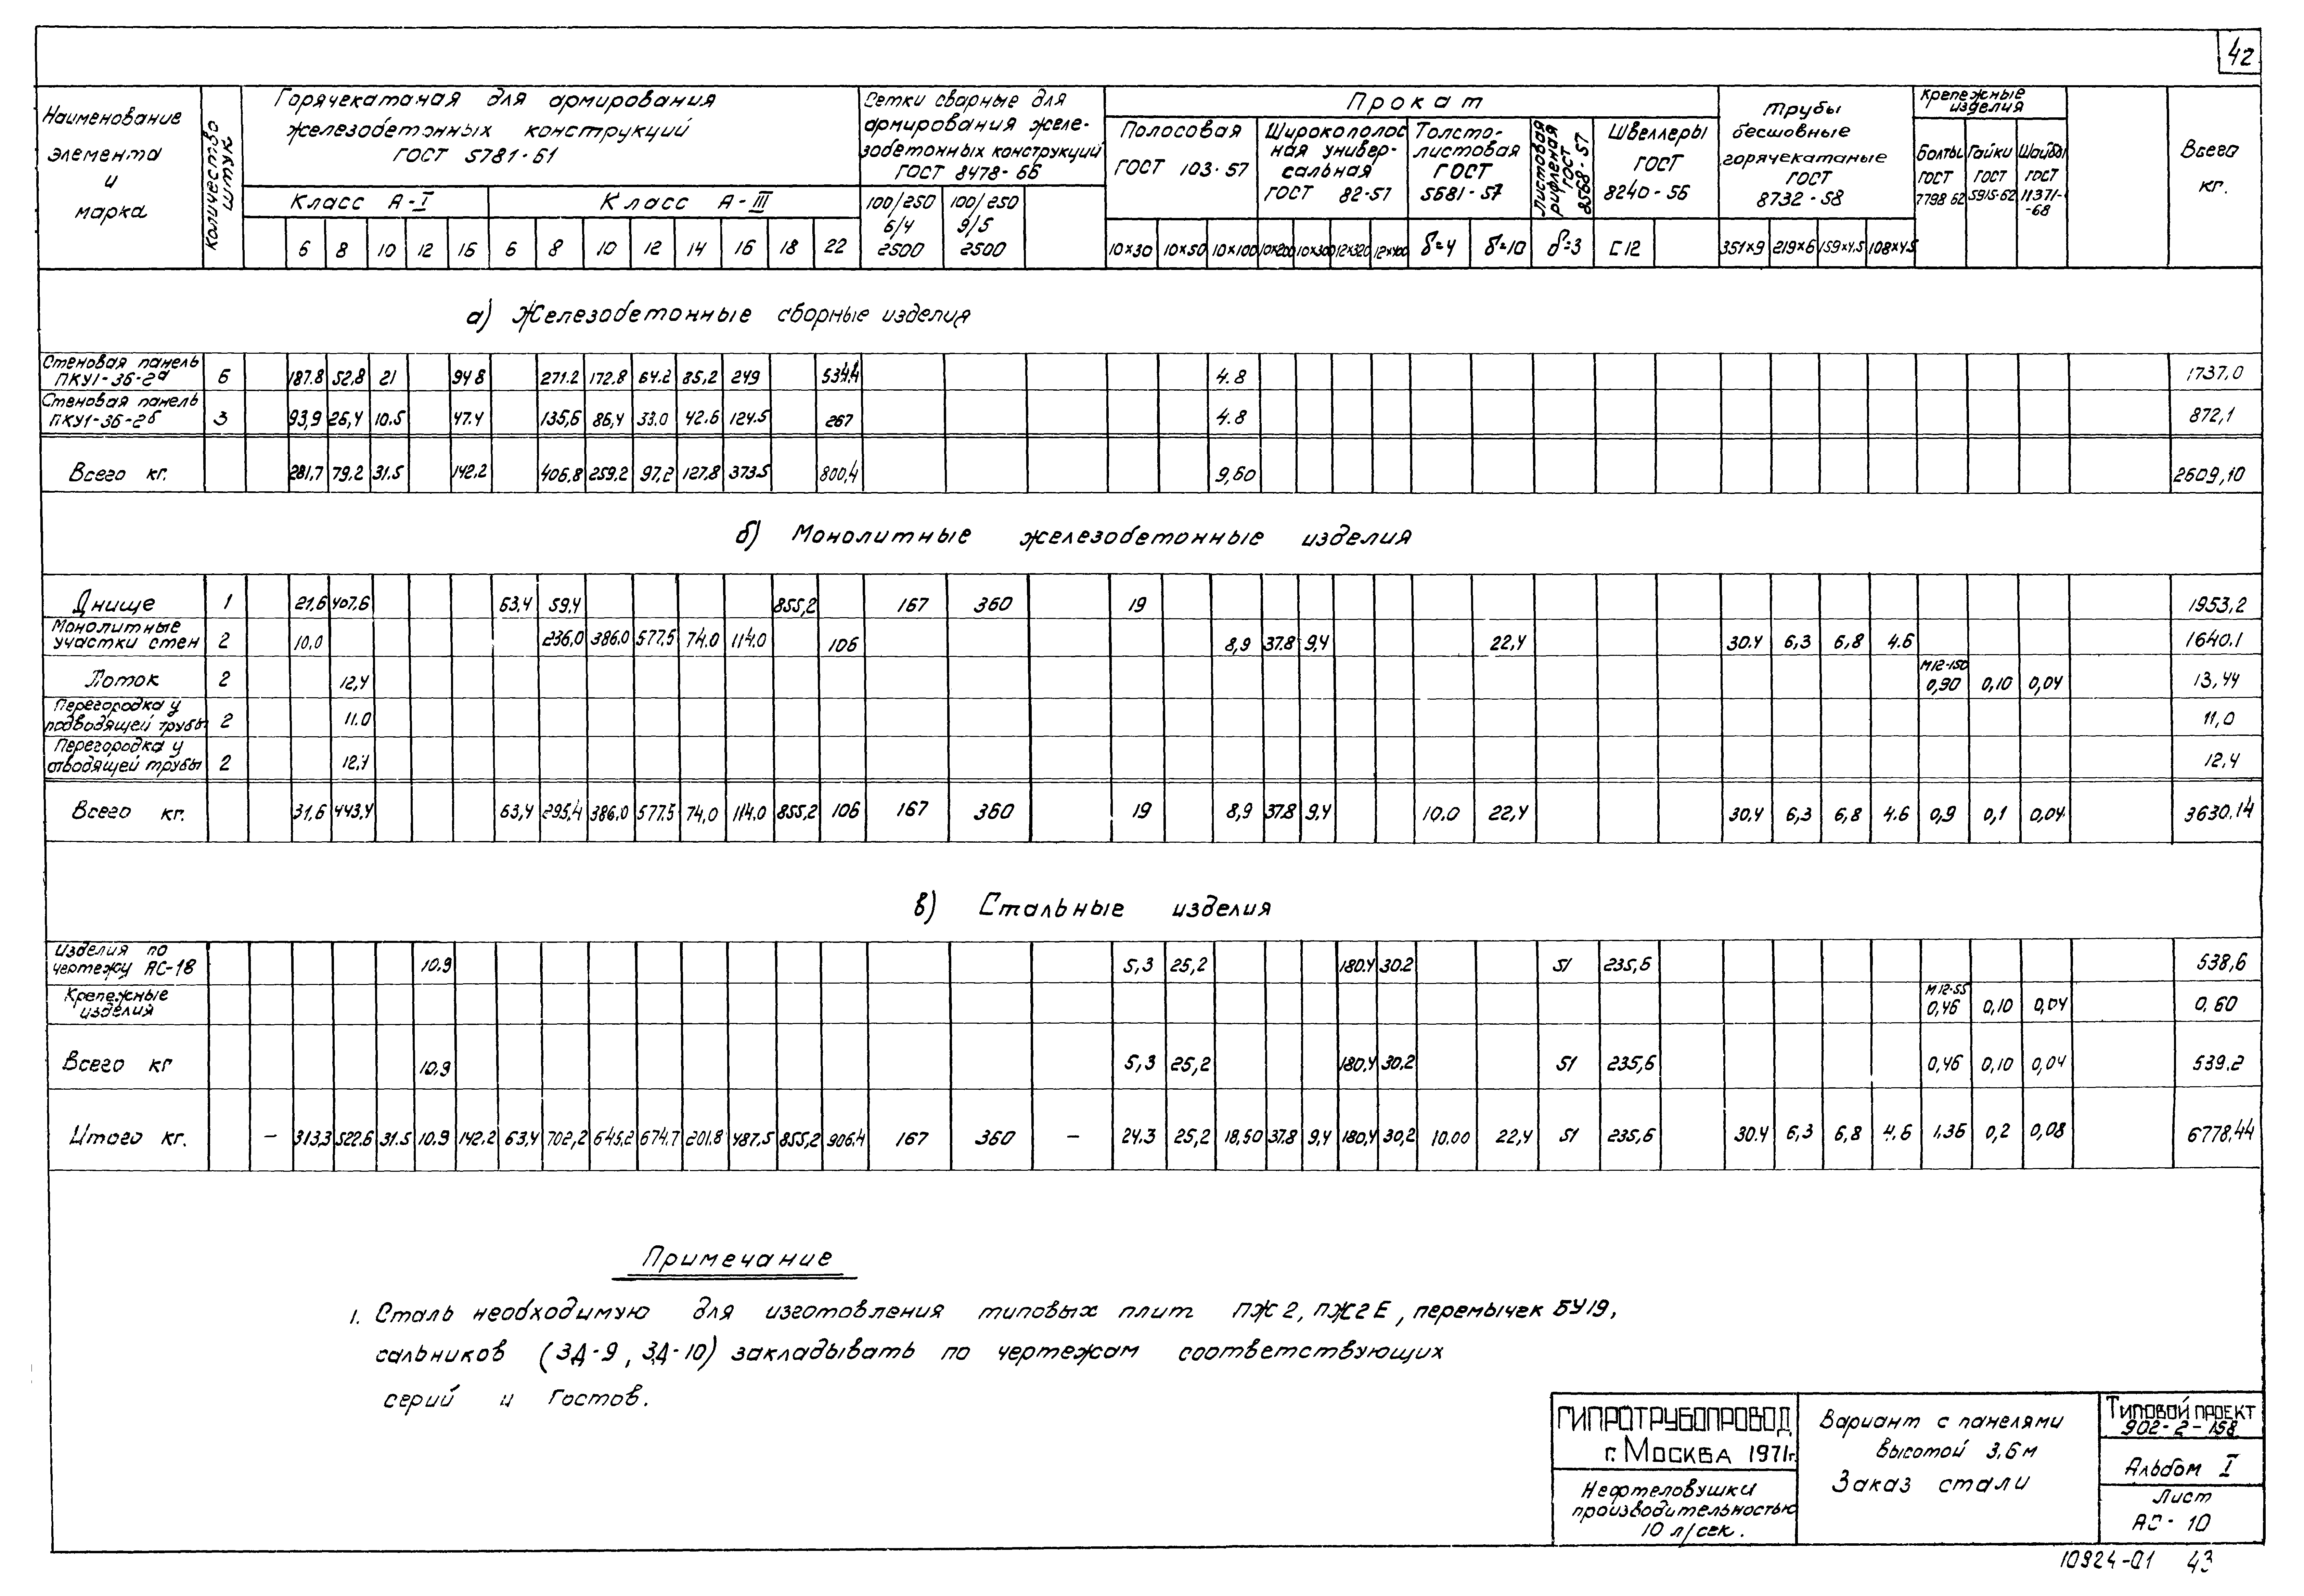 42
Наименование элемента и марка
Количество штук
Горячекатаная для армирования
железобетонных конструкций
ГОСТ 5781-61
Класс А-I
Класс А-III
6 8 10 12 16 6 8 10 12 14 16 18 22
Сетки сварные для
армирования желе-
зобетонных конструкций
ГОСТ 8478-66
100/250 6/4 2500
100/250 9/5 2500
Прокат
Полосовая ГОСТ 103-57
10×30 10×50 10×100
Широкополос
ная универ-
сальная
ГОСТ 82-57
10×200 10×300 12×320 12×400
Толсто-
листовая
ГОСТ
5681-57
δ=4 δ=10
Листовая рифленая ГОСТ 8568-57
δ=3
Швеллеры
ГОСТ
8240-56
С12
Трубы
бесшовные
горячекатаные
ГОСТ
8732-58
351×9 219×6 159×4.5 108×4.5
Крепежные
изделия
Болты ГОСТ 7798-62
Гайки ГОСТ 5915-62
Шайбы ГОСТ 11371-68
Всего кг.
а) Железобетонные сборные изделия
Стеновая панель
ПКУ1-36-2а 6 187.8 52,8 21 94.8 271.2 172.8 64.2 85,2 249 534.4 4.8 1737,0
Стеновая панель
ПКУ1-36-2б 3 93,9 26,4 10.5 47.4 135,6 86,4 33.0 42.6 124.5 267 4.8 872,1
Всего кг. 281,7 79,2 31.5 142.2 406,8 259,2 97,2 127,8 373.5 800,4 9,60 2609,10
б) Монолитные железобетонные изделия
Днище 1 21,6 407,6 63,4 59,4 855,2 167 360 19 1953,2
Монолитные
участки стен 2 10,0 236,0 386.0 577,5 74.0 114.0 106 8,9 37.8 9,4 22,4 30.4 6,3 6,8 4.6 1640.1
М12-150
Лоток 2 12,4 0,90 0,10 0,04 13,44
Перегородка у
подводящей трубы 2 11.0 11,0
Перегородка у
отводящей трубы 2 12,4 12,4
Всего кг. 31,6 443,4 63,4 295,4 386,0 577,5 74,0 114.0 855,2 106 167 360 19 8,9 37.8 9,4 10.0 22,4 30,4 6,3 6,8 4.6 0,9 0,1 0,04 3630.14
в) Стальные изделия
Изделия по
чертежу АС-18 10.9 5,3 25,2 180.4 30.2 51 235,6 538,6
М12-55
Крепежные
изделия 0,46 0,10 0,04 0,60
Всего кг 10,9 5,3 25,2 180.4 30,2 51 235,6 0,46 0,10 0,04 539.2
Итого кг. – 313,3 522.6 31.5 10.9 142.2 63,4 702,2 645,2 674.7 201.8 487,5 855,2 906.4 167 360 – 24.3 25,2 18,50 37.8 9,4 180,4 30,2 10.00 22,4 51 235,6 30.4 6,3 6,8 4.6 1.36 0,2 0,08 6778,44
Примечание
1. Сталь необходимую для изготовления типовых плит ПЖ2, ПЖ2Е, перемычек БУ19,
сальников (ЗД-9, ЗД-10) закладывать по чертежам соответствующих
серий и Гостов.
ГИПРОТРУБОПРОВОД
г. Москва 1971г.
Нефтеловушки
производительностью
10 л/сек.
Вариант с панелями
высотой 3,6м
Заказ стали
Типовой проект
902-2-158
Альбом I
Лист
АС-10
10924-01 43